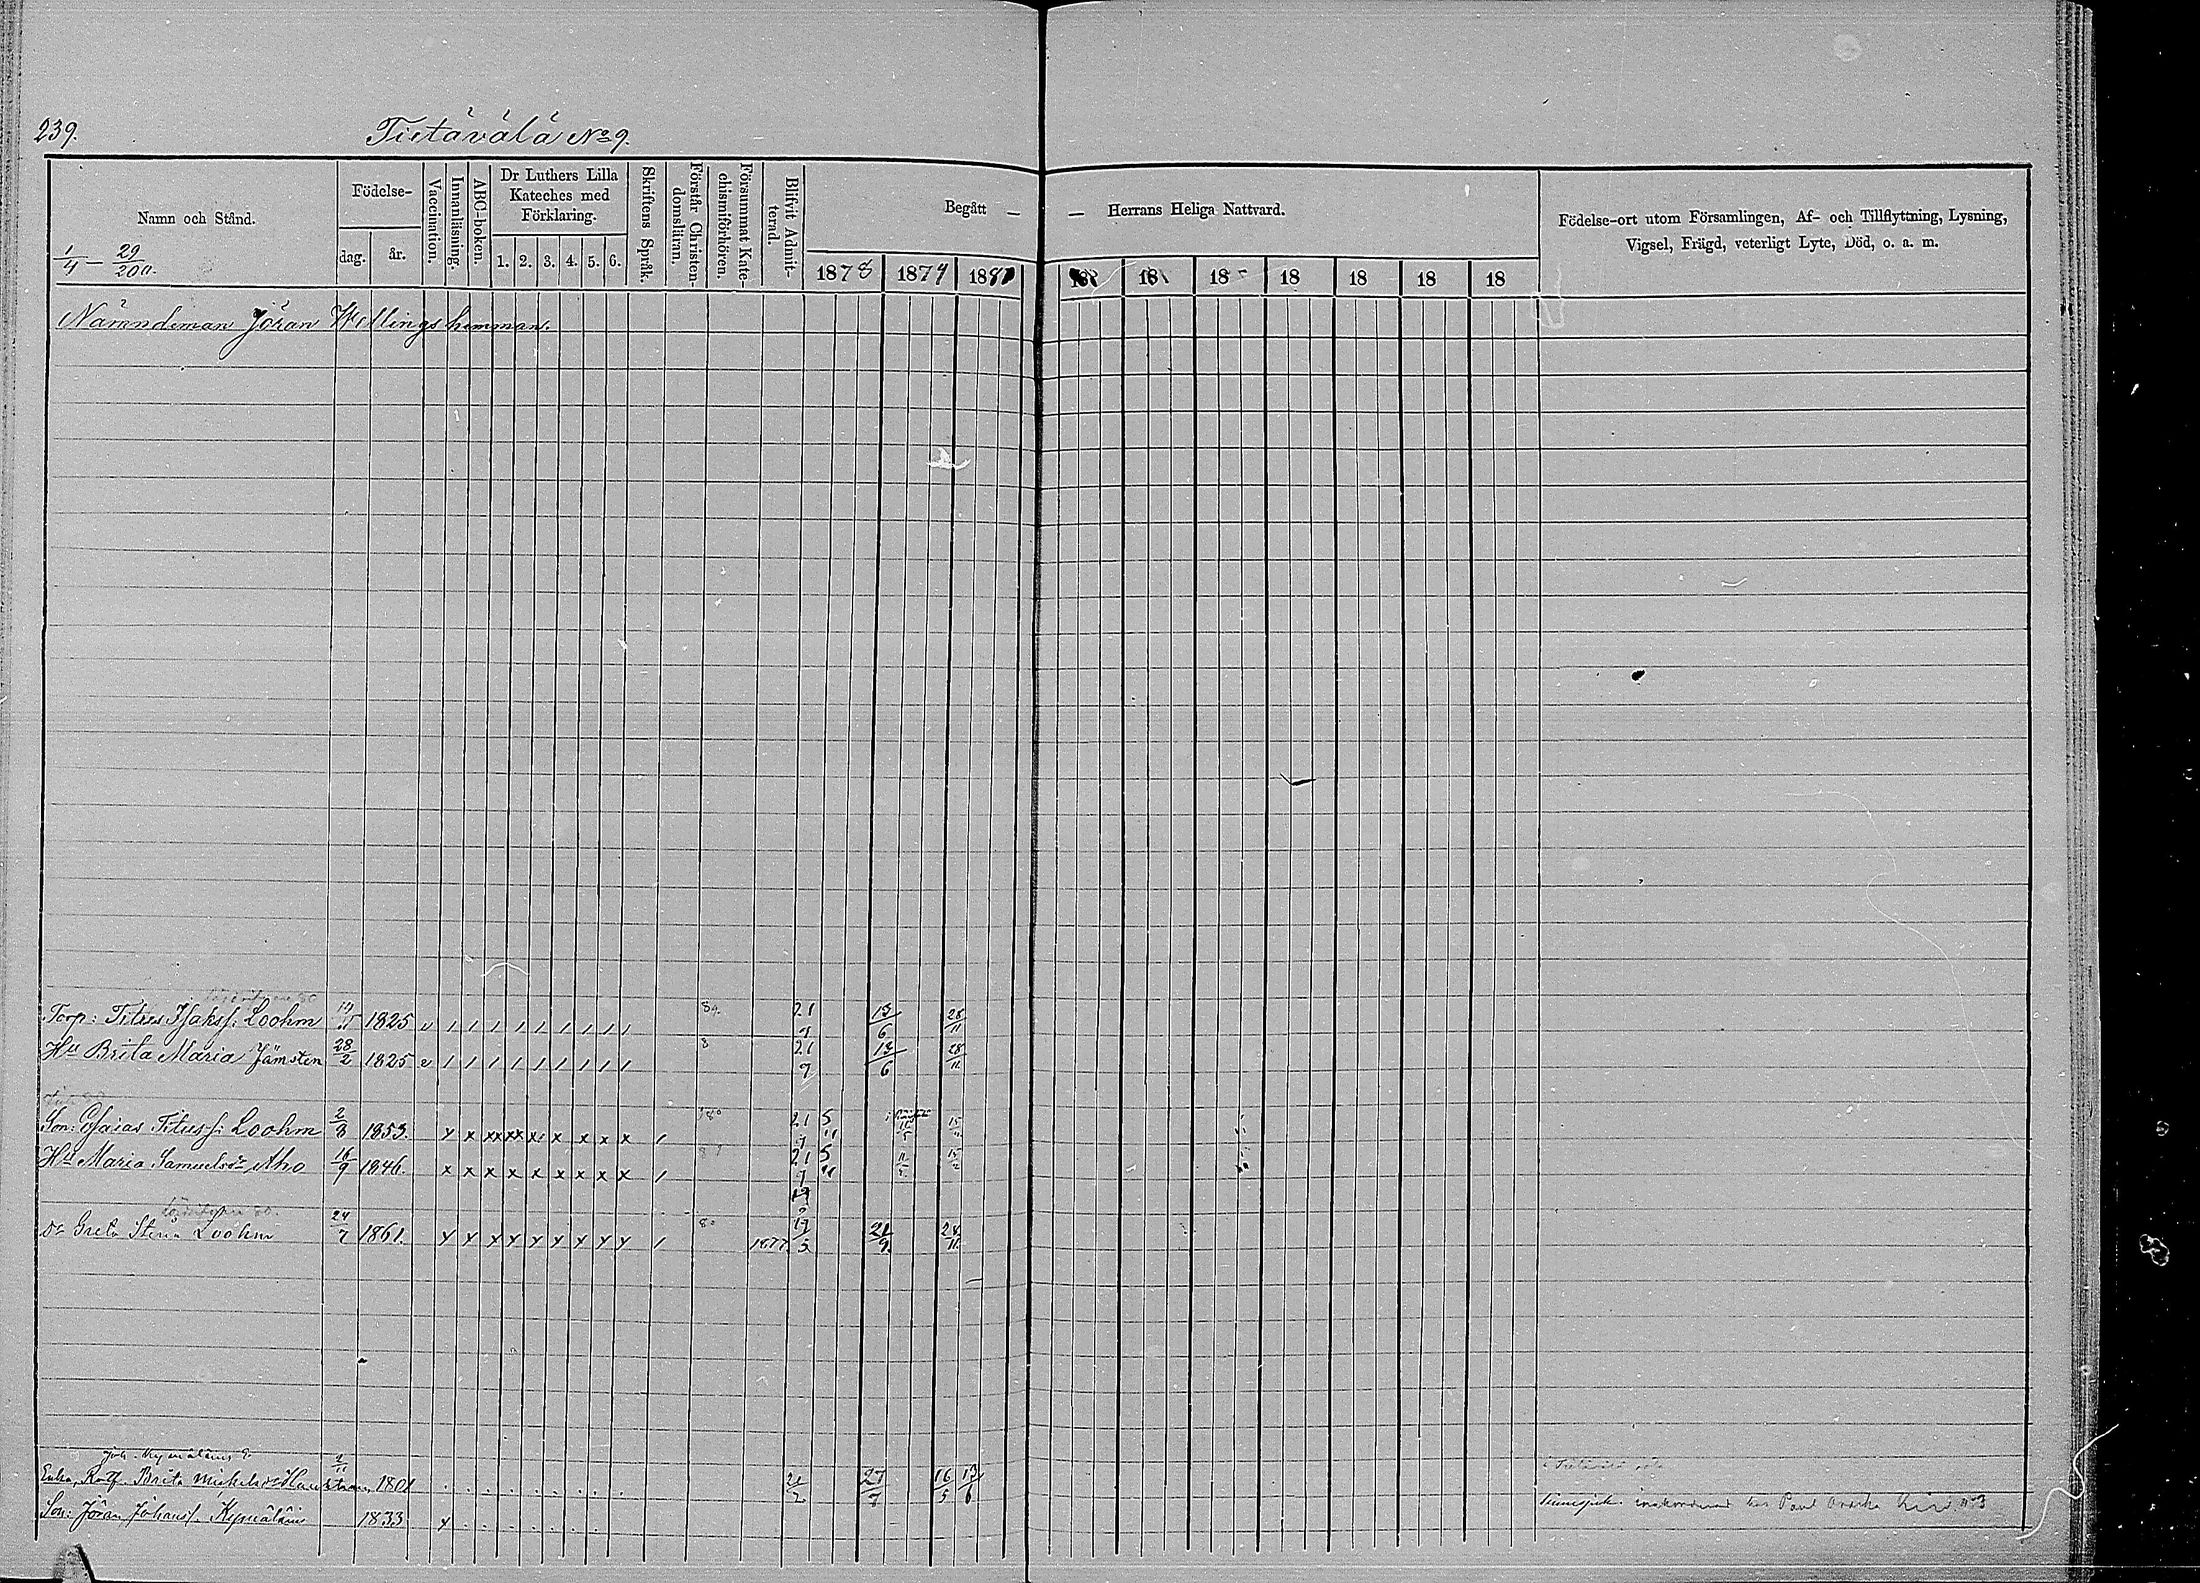 239. Tietävälä No 9.
Namn och Stånd.
1/4 — 29/200.
Födelse-
dag. år.
Vaccination.
Innanläsning.
ABC-boken.
Dr Luthers Lilla
Kateches med
Förklaring.
1. 2. 3. 4. 5. 6.
Skriftens Språk.
Förstår Christen-
domsläran.
Försummat Kate-
chismiförhören.
Blifvit Admit-
terad.
Begått —
— Herrans Heliga Nattvard.
1878 1879 188 18 18 18 18 18 18
Födelse-ort utom Församlingen, Af- och Tillflyttning, Lysning,
Vigsel, Frägd, veterligt Lyte, Död, o. a. m.
Nämndeman Jöran Wellings hemman.
Torp: Titus Isakss: Loohm 1825 v / / / / / / / / / 21/7 13/6 28/11
Hu Brita Maria Jämsten 28/2 1825 v / / / / / / / / / 8 21/7 13/6 28/11
Son: Esaias Tituss: Loohm 2/8 1853. x x xx xx x x x x x / 21/7 5/11 11/5
Hu Maria Samuelsdr Aho 16/9 1846. x x x x x x x x x / 21/7 5/11 11/5
Dr Greta Stina Loohm 24/7 1861. x x x x x x x x x / 1877. 21/9 28/11
Joh. Kymäläinis E
Enka, Brita Mickelsdr 2/11 1801 27/7 16/5 13/6
Son: Jöran Johanss. Kymäläin 1833 x
hos Paul No 3